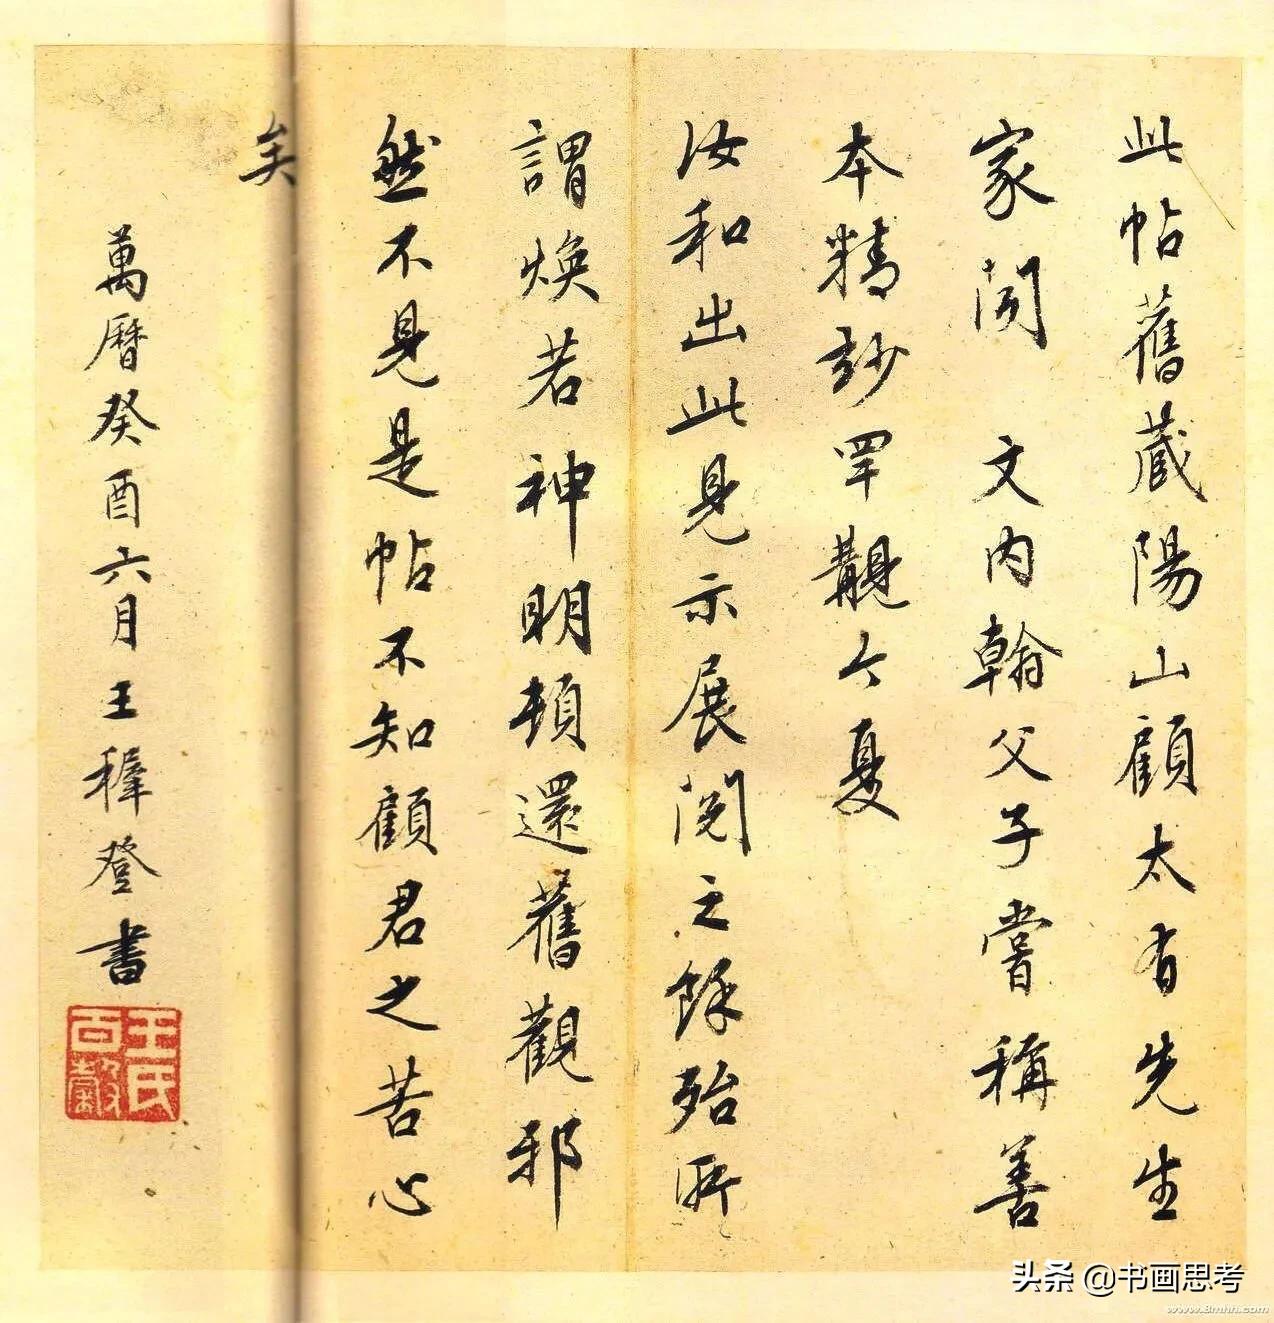 此帖舊藏陽山顧太有先生
家聞 文內翰父子嘗稱善
本精玅罕覯今夏
汝和出此見示展閱之餘殆所
謂煥若神眀頓還舊觀邪
然不見是帖不知顧君之苦心
矣
萬曆癸酉六月王穉登書
王氏百穀
头条 @书画思考
www.8mhh.com